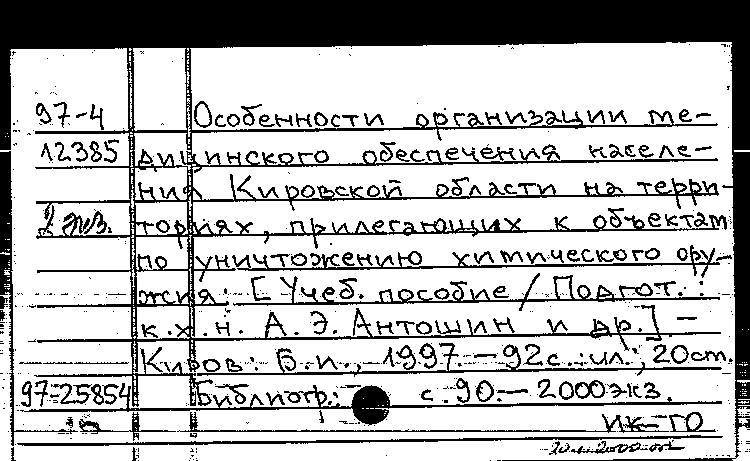 97-4 Особенности организации ме-
12385 дицинского обеспечения населе-
ния Кировской области на терри-
2 экз. ториях, прилегающих к объектам
по уничтожению химического ору-
жия: [Учеб. пособие / Подгот.:
к.х.н. А.Э. Антошин и др.] -
Киров: Б.и., 1997. - 92с.: ил.; 20см.
97-25854 Библиогр.: с. 90. - 2000экз.
ИК-ТО